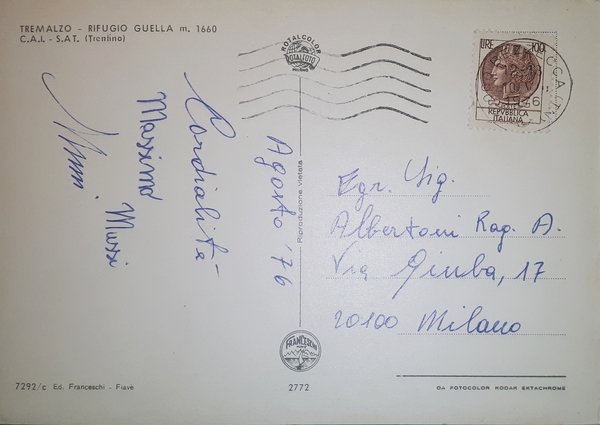 TREMALZO - RIFUGIO GUELLA m. 1660
C.A.I. - S.A.T. (Trentino)
ROTALCOLOR
ROTALFOTO
MILANO
LIRE 100
REPVBBLICA
ITALIANA
1976
Agosto '76
Cordialità
Massimo
Mussi
Riproduzione vietata
Egr. Sig.
Albertoni Rag. A.
Via Giuba, 17
20100 Milano
FRANCESCHI
7292/c Ed. Franceschi - Fiavè
2772
DA FOTOCOLOR KODAK EKTACHROME